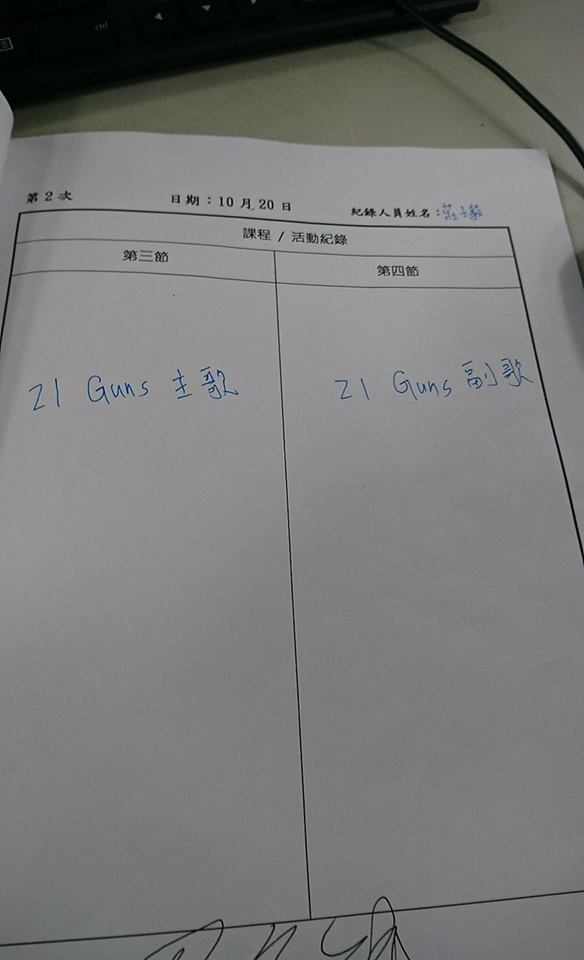 ctrl
第 2 次
日期：10 月 20 日
紀錄人員姓名：
課程 / 活動紀錄
第三節
第四節
21 Guns 主歌
21 Guns 副歌